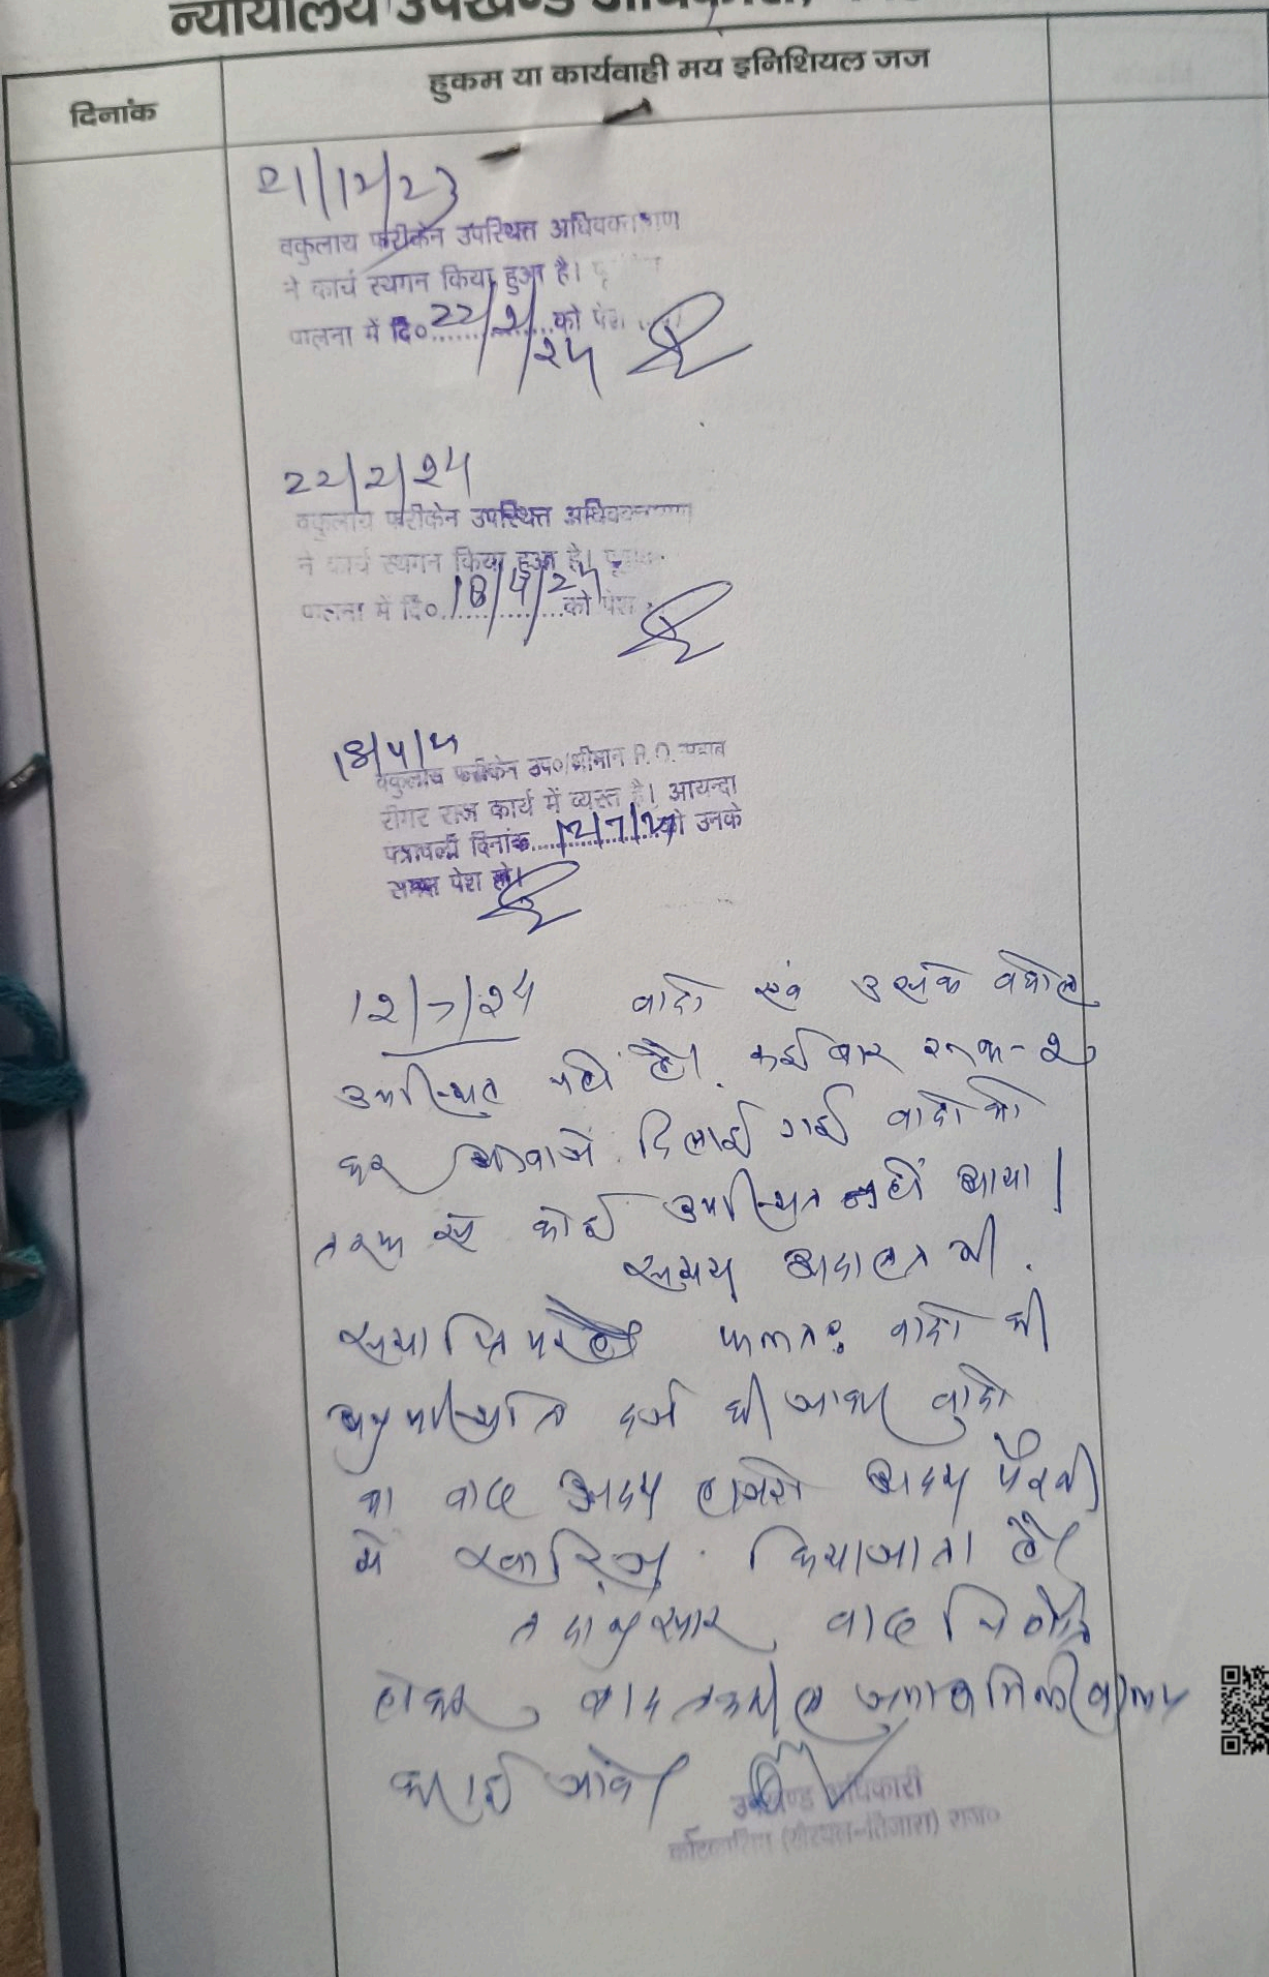 न्यायालय उपखण्ड
दिनांक
हुकम या कार्यवाही मय इनिशियल जज
21/12/23
वकुलाय फरीकेन उपस्थित अधिवक्तागण
ने कार्य स्थगन किया हुआ है।
पालना में दि० 22/2/24 को पेश
22/2/24
वकुलाय फरीकेन उपस्थित अधिवक्तागण
ने कार्य स्थगन किया हुआ है।
पालना में दि० 18/4/24 को पेश
18/4/24
वकुलाय फरीकेन उप०/श्रीमान P.O.
दीगर राज कार्य में व्यस्त है। आयन्दा
पत्रावली दिनांक 12/7/24 को उनके
समक्ष पेश हो।
12/7/24 वादी एवं उसके वकील
उपस्थित नहीं है। कई बार रुक-रु
कर आवाजे दिलाई गई वादी की
तरफ से कोई उपस्थित नहीं आया।
समय अदालत की
समाप्ति पर है फलतः वादी की
अनुपस्थिति दर्ज की जाकर वादी
का वाद अदम हाजरी अदम पैरवी
में खारिज किया जाता है।
तदानुसार वाद निर्णित
होकर बाद तकमील
कराई जावे।
उपखण्ड अधिकारी
कोटकासिम (खैरथल-तिजारा) राज०